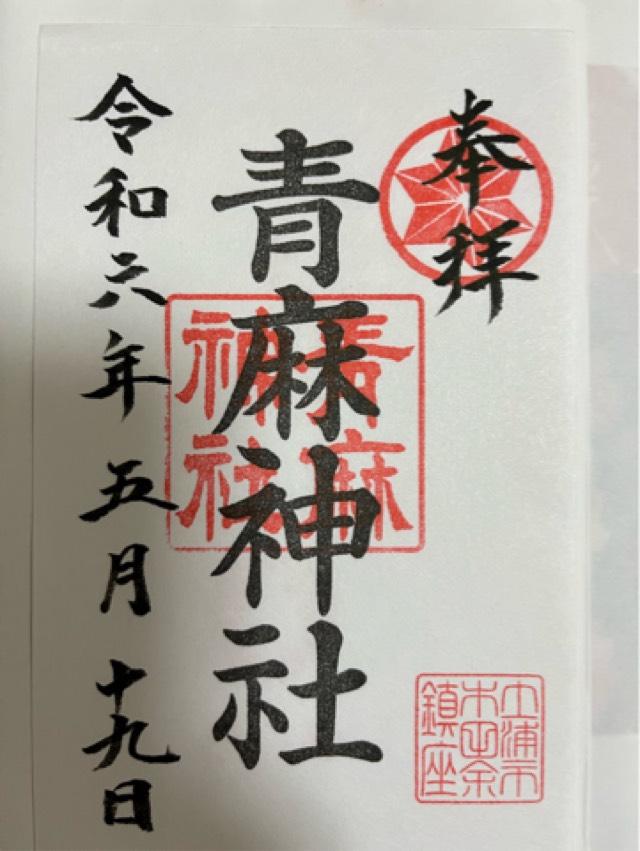 奉拝
青麻神社
青麻
神社
令和六年五月十九日
土浦市
木田余
鎮座